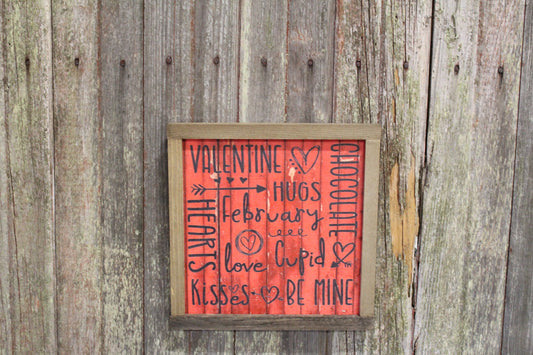 VALENTINE
CHOCOLATE
HUGS
HEARTS
February
love Cupid
Kisses BE MINE